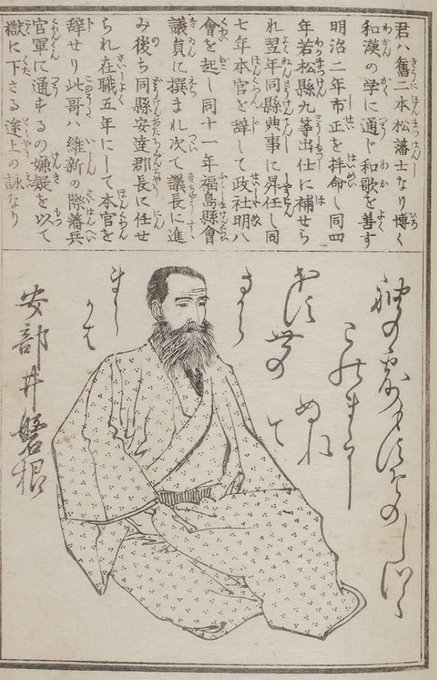 君ハ舊二本松藩士なり博く
和漢の学に通じ和歌を善す
明治二年市正を拝命し同四
年若松縣九等出仕に補せら
れ翌年同縣典事に昇任し同
七年本官を辞して政社明八
會を起し同十一年福島縣會
議員に撰まれ次て議長に進
み後ち同縣安達郡長に任せ
られ在職五年にして本官を
辞せり此哥ハ維新の際藩兵
官軍に通ずるの嫌疑を以て
獄に下さる途上の詠なり
安部井磐根